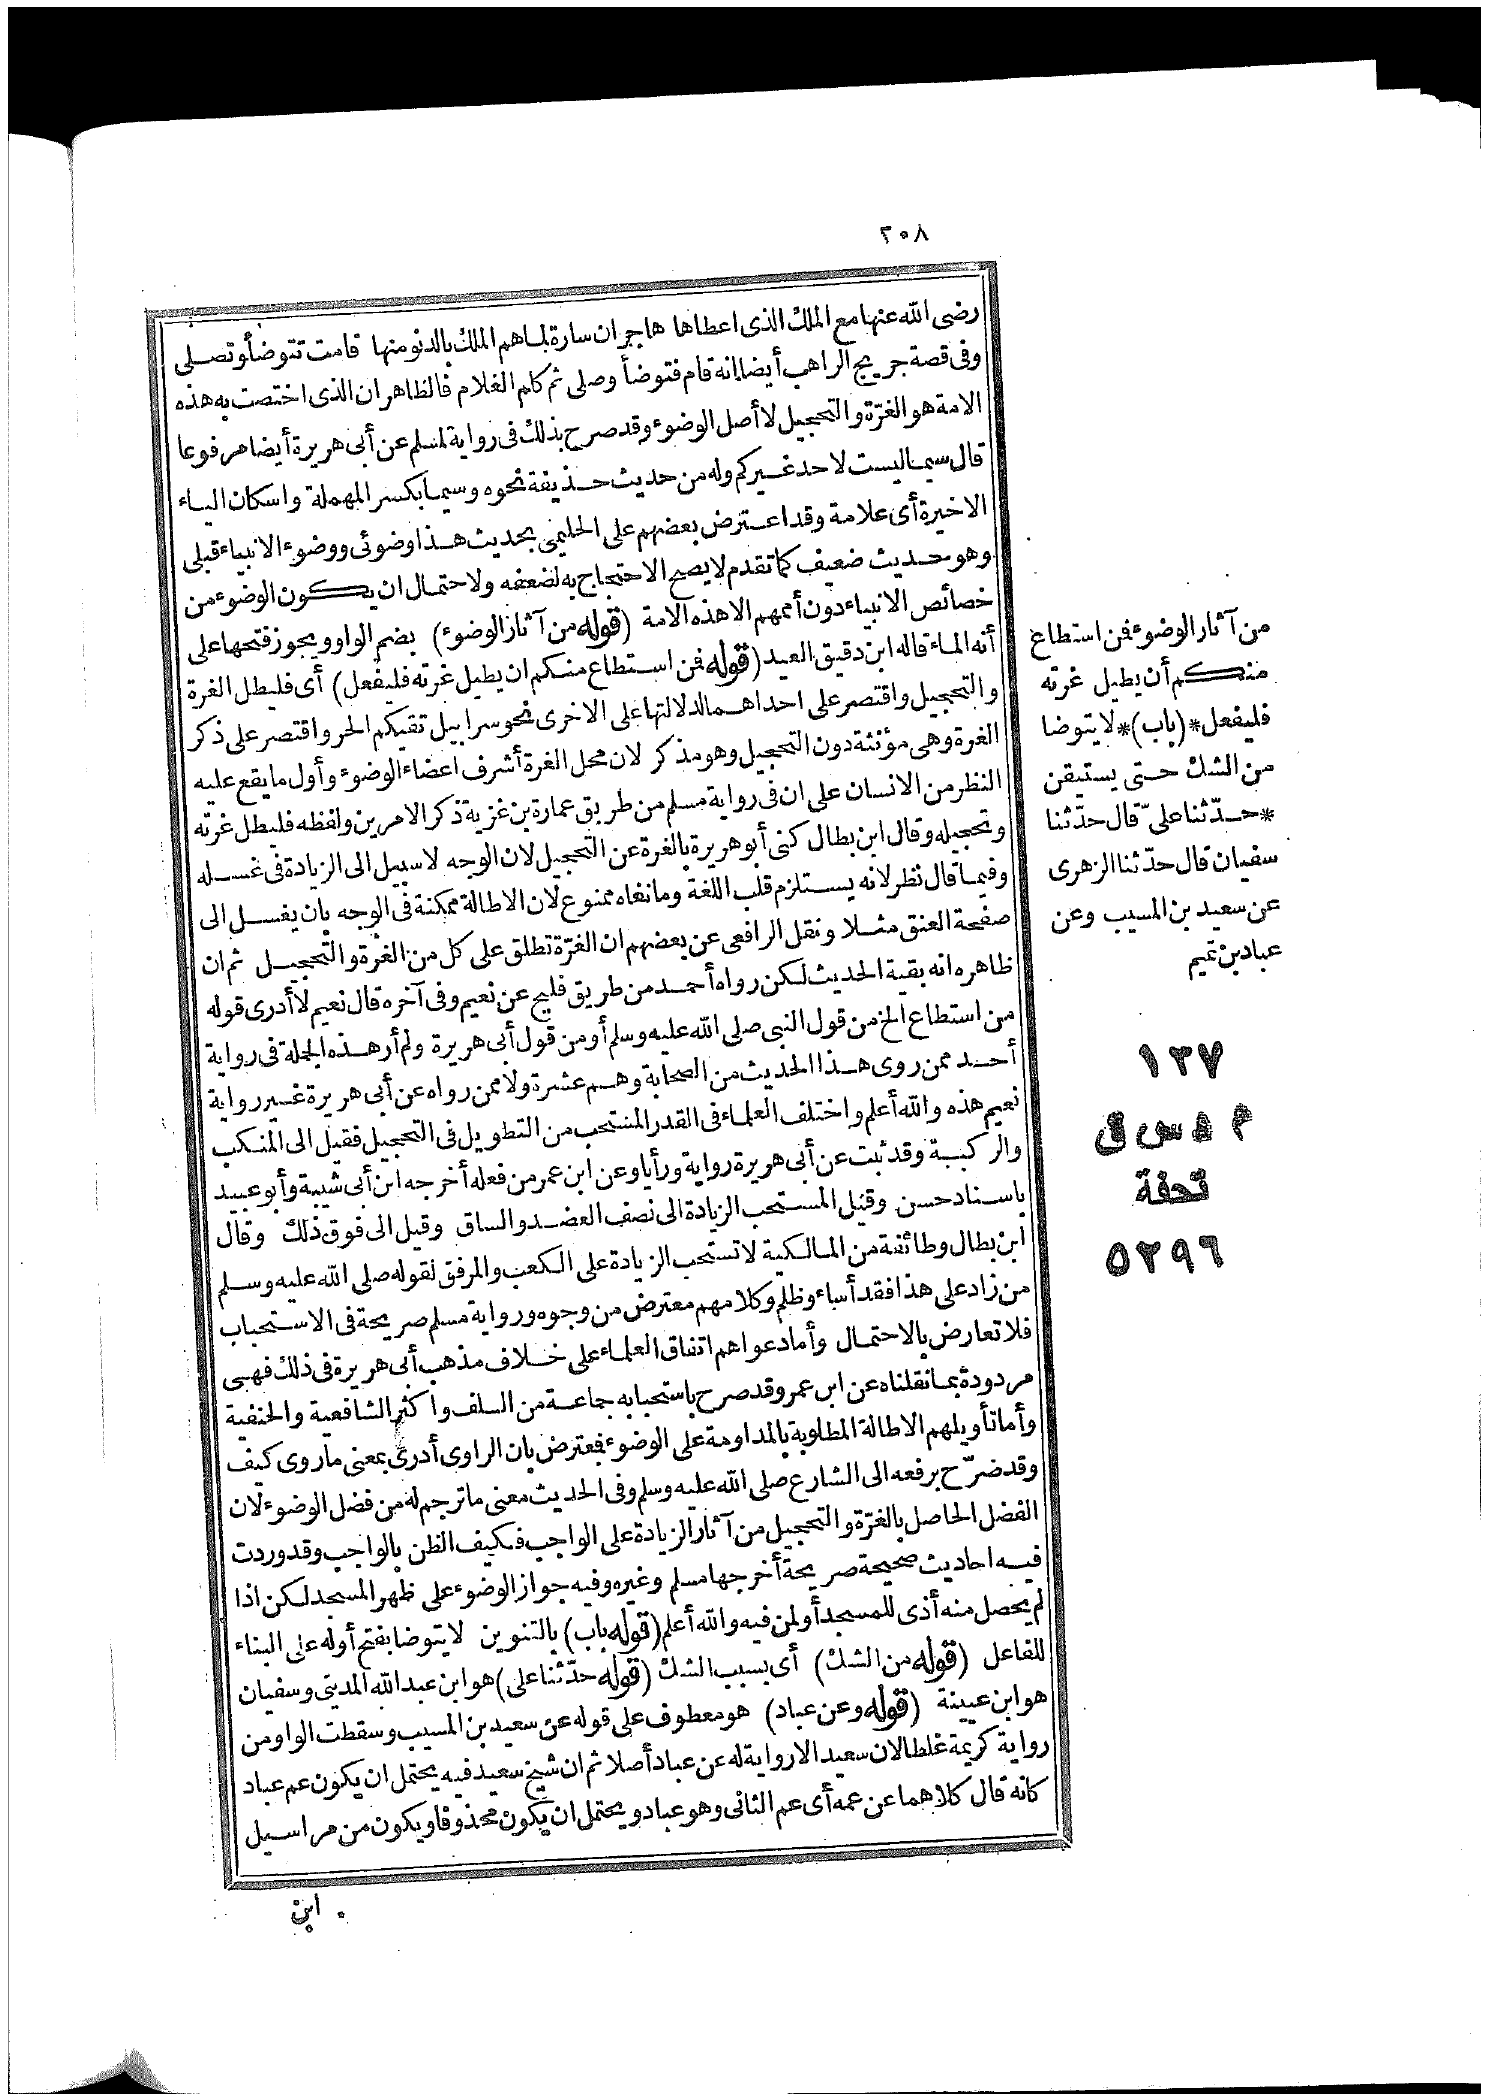 ٢٠٨
رضى الله عنها مع الملك الذى اعطاها هاجر ان سارة لما هم الملك بالدنو منها قامت تتوضأ وتصلى
وفى قصة جريج الراهب أيضا انه قام فتوضأ وصلى ثم كلم الغلام فالظاهر ان الذى اختصت به هذه
الامة هو الغرّة والتحجيل لا أصل الوضوء وقد صرح بذلك فى رواية لمسلم عن أبى هريرة أيضا مرفوعا
قال سيما ليست لاحد غيركم وله من حديث حذيفة نحوه وسيما بكسر المهملة واسكان الياء
الاخيرة أى علامة وقد اعترض بعضهم على الحليمى بحديث هذا وضوئى ووضوء الانبياء قبلى
وهو حديث ضعيف كما تقدم لا يصح الاحتجاج به لضعفه ولاحتمال ان يكون الوضوء من
خصائص الانبياء دون أممهم الا هذه الامة (قوله من آثار الوضوء) بضم الواو ويجوز فتحها على
أنه الماء قاله ابن دقيق العيد (قوله فمن استطاع منكم ان يطيل غرته فليفعل) أى فليطل الغرة
والتحجيل واقتصر على احداهما لدلالتها على الاخرى نحو سرابيل تقيكم الحر واقتصر على ذكر
الغرة وهى مؤنثة دون التحجيل وهو مذكر لان محل الغرة أشرف اعضاء الوضوء وأول ما يقع عليه
النظر من الانسان على ان فى رواية مسلم من طريق عمارة بن غزية ذكر الامرين ولفظه فليطل غرته
وتحجيله وقال ابن بطال كنى أبو هريرة بالغرة عن التحجيل لان الوجه لا سبيل الى الزيادة فى غسله
وفيما قال نظر لانه يستلزم قلب اللغة وما نفاه ممنوع لان الاطالة ممكنة فى الوجه بان يغسل الى
صفحة العنق مثلا ونقل الرافعى عن بعضهم ان الغرّة تطلق على كل من الغرة والتحجيل ثم ان
ظاهره انه بقية الحديث لكن رواه أحمد من طريق فليح عن نعيم وفى آخره قال نعيم لا أدرى قوله
من استطاع الخ من قول النبى صلى الله عليه وسلم أو من قول أبى هريرة ولم أر هذه الجملة فى رواية
أحد ممن روى هذا الحديث من الصحابة وهم عشرة ولا ممن رواه عن أبى هريرة غير رواية
نعيم هذه والله أعلم واختلف العلماء فى القدر المستحب من التطويل فى التحجيل فقيل الى المنكب
والركبة وقد ثبت عن أبى هريرة رواية ورأيا وعن ابن عمر من فعله أخرجه ابن أبى شيبة وأبو عبيد
باسناد حسن وقيل المستحب الزيادة الى نصف العضد والساق وقيل الى فوق ذلك وقال
ابن بطال وطائفة من المالكية لا تستحب الزيادة على الكعب والمرفق لقوله صلى الله عليه وسلم
من زاد على هذا فقد أساء وظلم وكلامهم معترض من وجوه ورواية مسلم صريحة فى الاستحباب
فلا تعارض بالاحتمال وأما دعواهم اتفاق العلماء على خلاف مذهب أبى هريرة فى ذلك فهى
مردودة بما نقلناه عن ابن عمر وقد صرح باستحبابه جماعة من السلف وأكثر الشافعية والحنفية
وأما تأويلهم الاطالة المطلوبة بالمداومة على الوضوء فمعترض بان الراوى أدرى بمعنى ما روى كيف
وقد صرّح برفعه الى الشارع صلى الله عليه وسلم وفى الحديث معنى ما ترجم له من فضل الوضوء لان
الفضل الحاصل بالغرّة والتحجيل من آثار الزيادة على الواجب فكيف الظن بالواجب وقد وردت
فيه احاديث صحيحة صريحة أخرجها مسلم وغيره وفيه جواز الوضوء على ظهر المسجد لكن اذا
لم يحصل منه أذى للمسجد أو لمن فيه والله أعلم (قوله باب) بالتنوين لا يتوضا بفتح أوله على البناء
للفاعل (قوله من الشك) أى بسبب الشك (قوله حدّثنا على) هو ابن عبد الله المدينى وسفيان
هو ابن عيينة (قوله وعن عباد) هو معطوف على قوله عن سعيد بن المسيب وسقطت الواو من
رواية كريمة غلطا لان سعيدا لا رواية له عن عباد أصلا ثم ان شيخ سعيد فيه يحتمل ان يكون عم عباد
كانه قال كلاهما عن عمه أى عم الثانى وهو عباد ويحتمل ان يكون محذوفا ويكون من مراسيل
ابن
من آثار الوضوء فمن استطاع
منكم أن يطيل غرته
فليفعل *(باب)* لا يتوضا
من الشك حتى يستيقن
* حدّثنا علىّ قال حدّثنا
سفيان قال حدّثنا الزهرى
عن سعيد بن المسيب وعن
عباد بن تميم
١٣٧
م د س ق
تحفة
٥٢٩٦